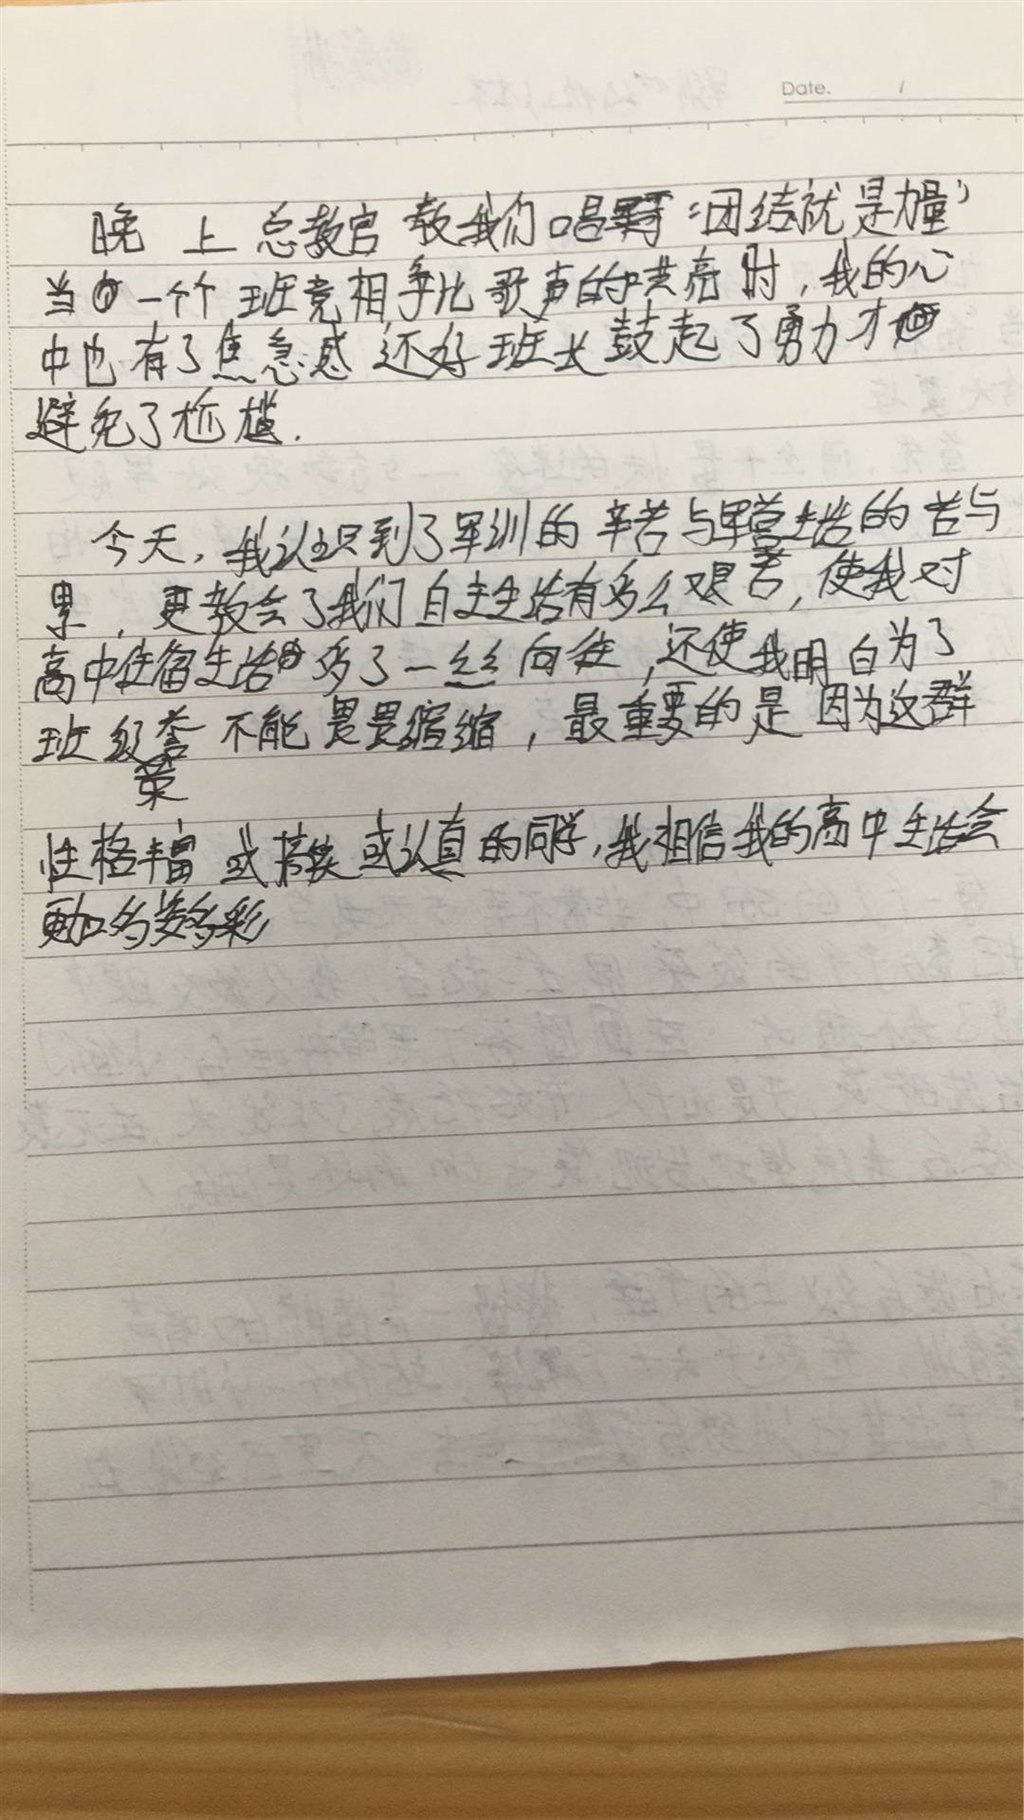 Date.
晚上总教官教我们唱军歌"团结就是力量"
当一个个班竞相争比歌声的洪亮时,我的心
中也有了焦急感 还好班长鼓起了勇力才
避免了尴尬.
今天,我认识到了军训的辛苦与军营生活的苦与
累,更教会了我们自主生活有多么艰苦,使我对
高中住宿生活多了一丝向往,还使我明白为了
班级荣誉不能畏畏缩缩,最重要的是因为这群
性格丰富 或搞笑或认真的同学,我相信我的高中生活会
更加多姿多彩